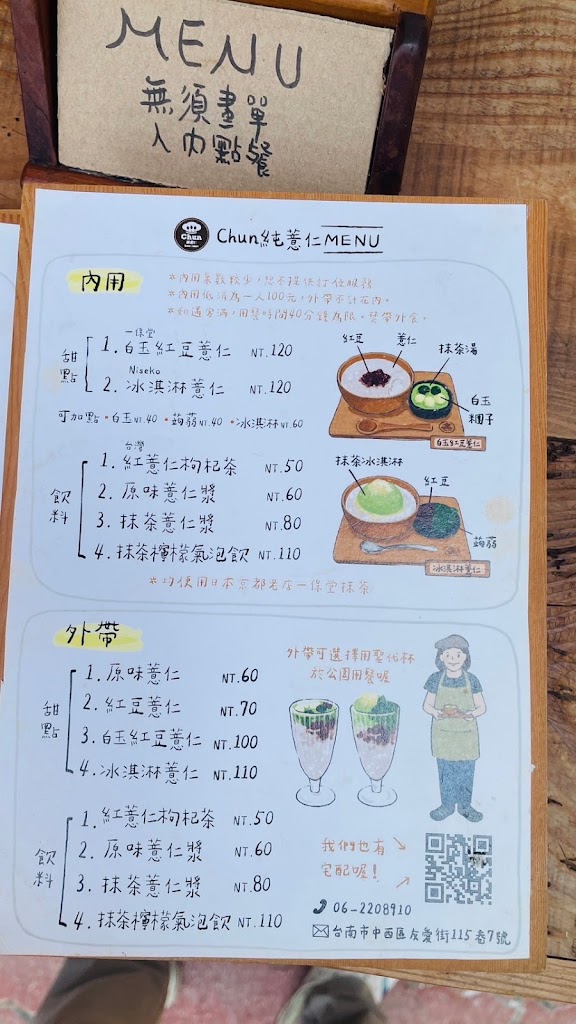 MENU
無須畫單
入內點餐
Chun
Chun純薏仁MENU
內用
*內用席數較少，恕不提供訂位服務
*內用低消為一人100元，外帶不計在內。
*如遇客滿，用餐時間40分鐘為限。禁帶外食。
甜點
一保堂
1. 白玉紅豆薏仁 NT.120
Niseko
2. 冰淇淋薏仁 NT.120
可加點 • 白玉NT.40 • 蒟蒻NT.40 • 冰淇淋NT.60
紅豆
薏仁
抹茶湯
白玉糰子
白玉紅豆薏仁
飲料
台灣
1. 紅薏仁枸杞茶 NT.50
2. 原味薏仁漿 NT.60
3. 抹茶薏仁漿 NT.80
4. 抹茶檸檬氣泡飲 NT.110
抹茶冰淇淋
紅豆
蒟蒻
冰淇淋薏仁
*均使用日本京都老店一保堂抹茶
外帶
甜點
1. 原味薏仁 NT.60
2. 紅豆薏仁 NT.70
3. 白玉紅豆薏仁 NT.100
4. 冰淇淋薏仁 NT.110
外帶可選擇用聖代杯
於公園用餐喔
飲料
1. 紅薏仁枸杞茶 NT.50
2. 原味薏仁漿 NT.60
3. 抹茶薏仁漿 NT.80
4. 抹茶檸檬氣泡飲 NT.110
我們也有
宅配喔！
06-2208910
台南市中西區友愛街115巷7號